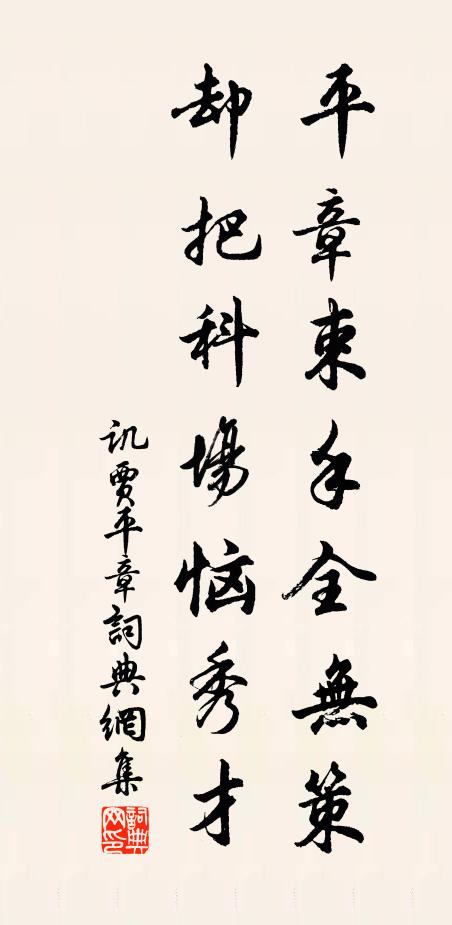 平章束手全無策
却把科場惱秀才
讥賈平章詞典網集
詞典網印